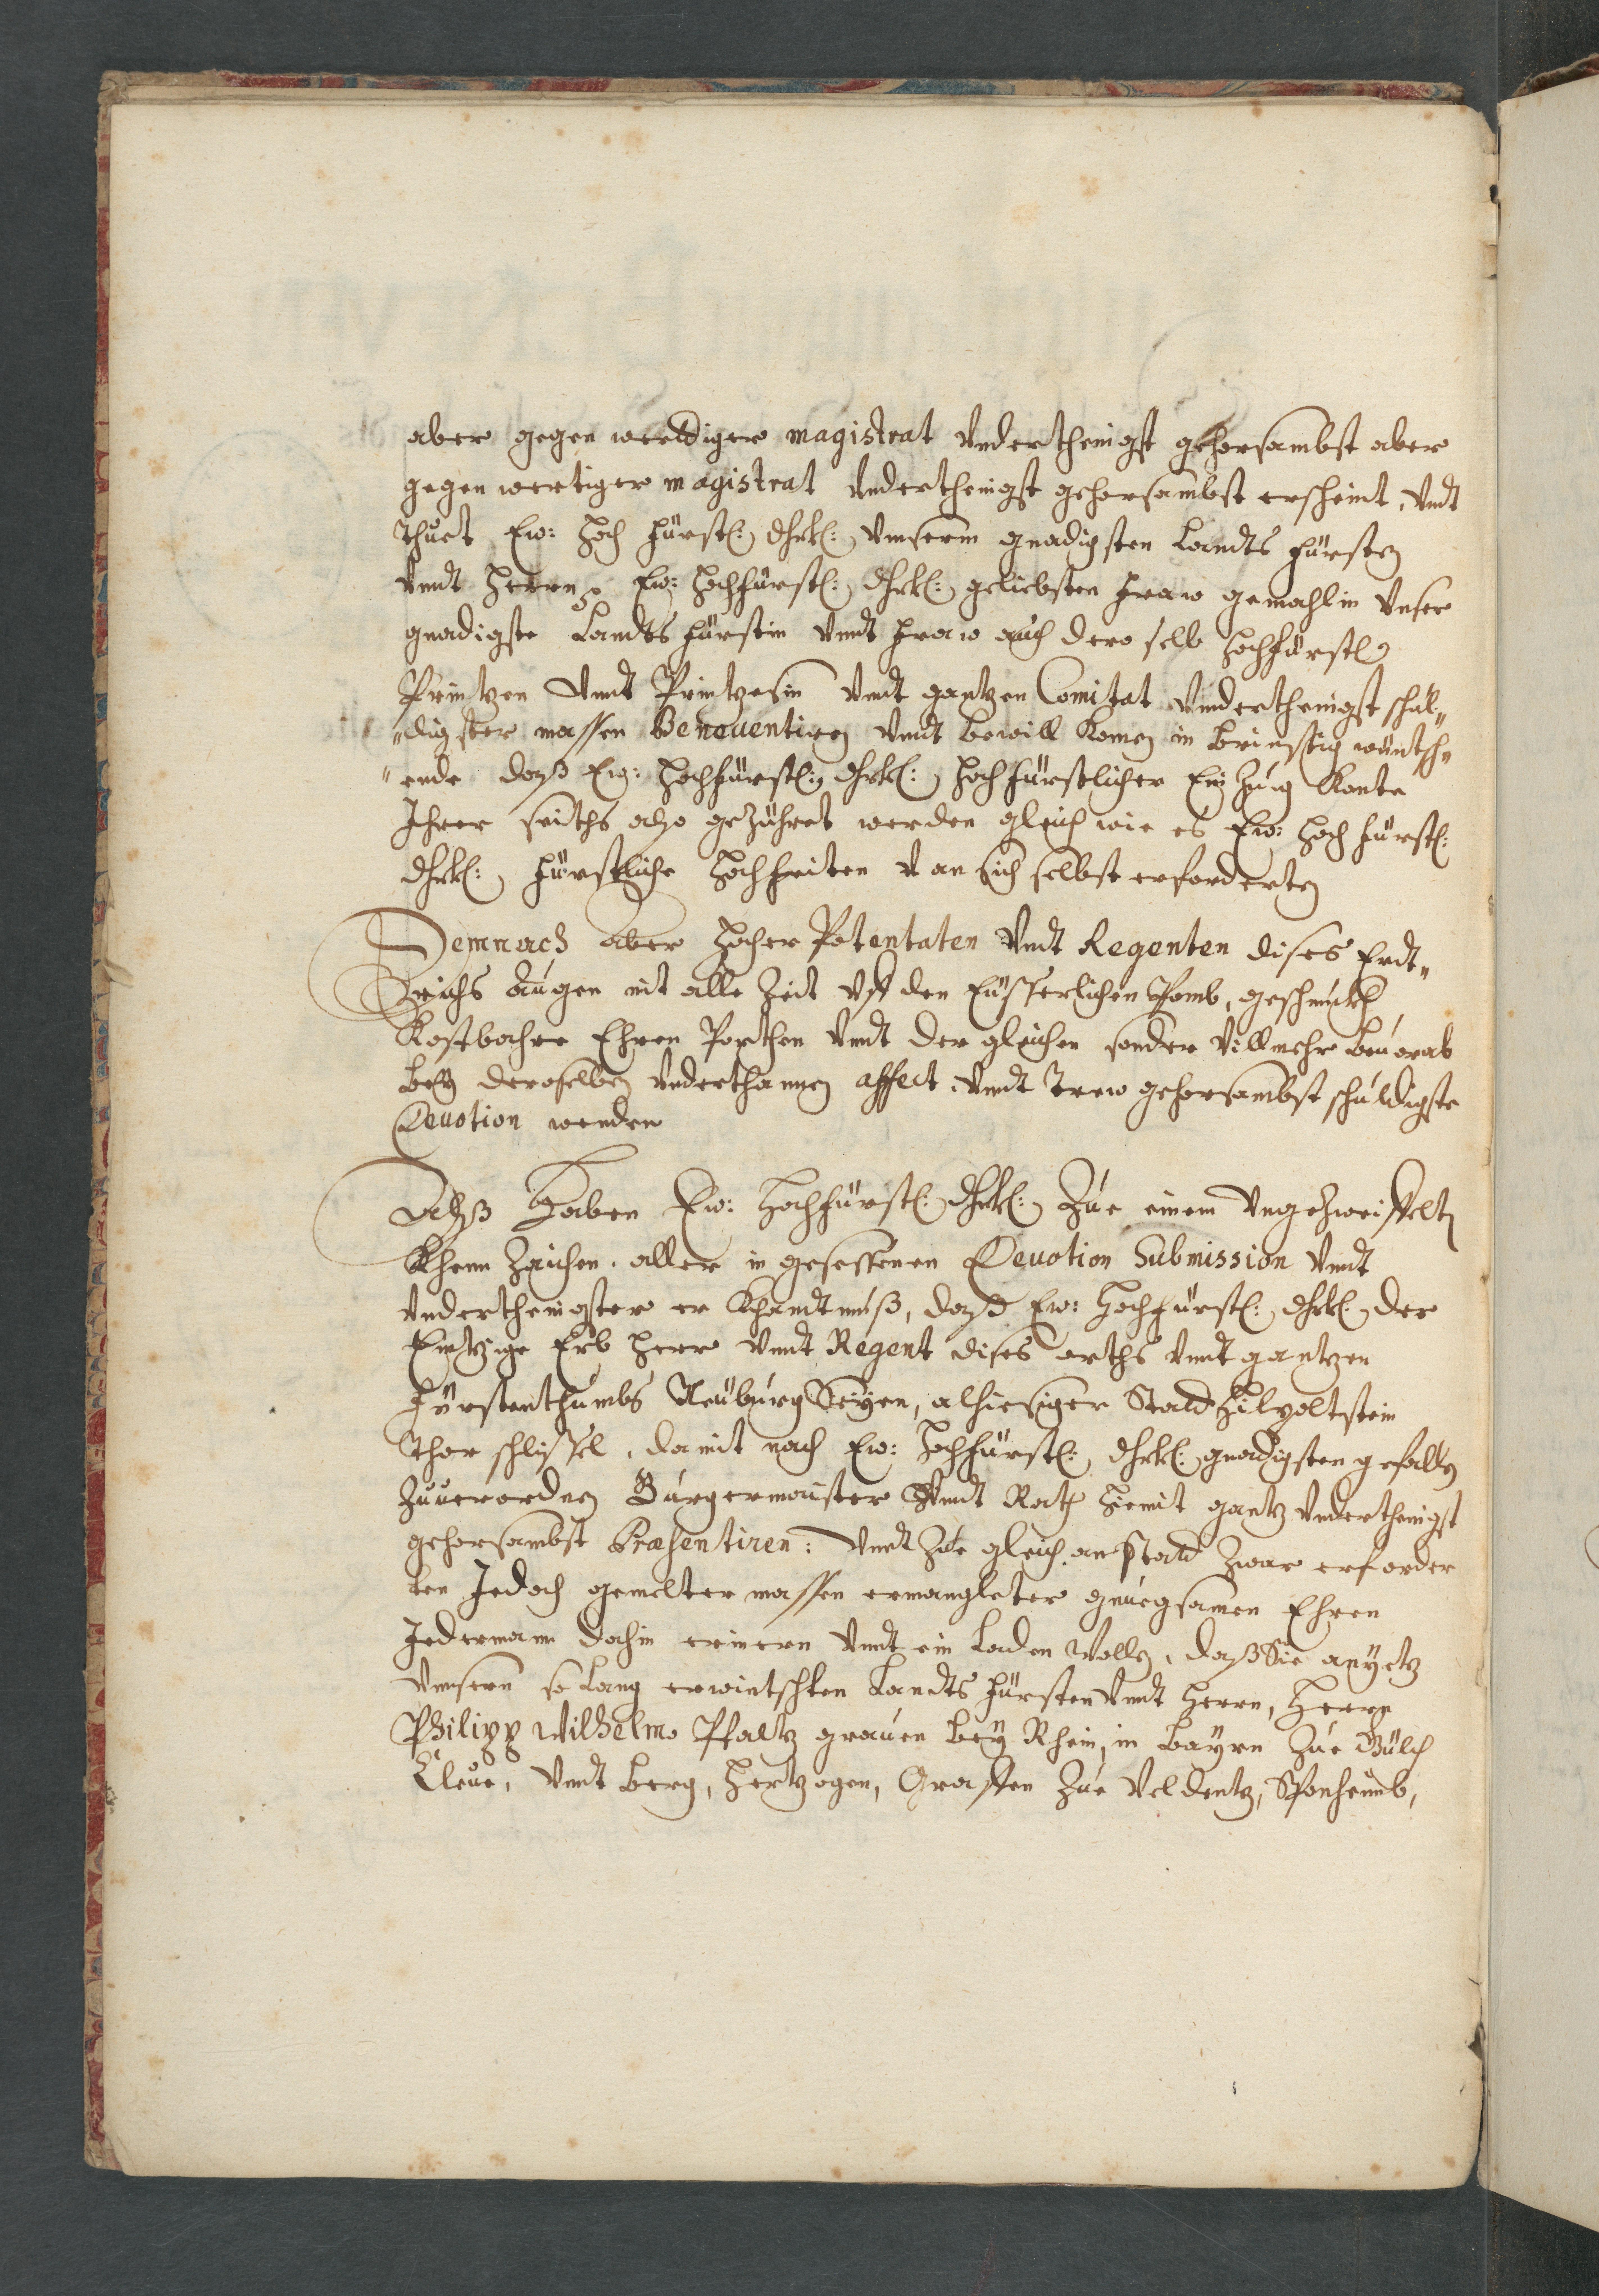 aber gegen werdtiger magistrat Underthenigst gehorsambst aber
gegen wertiger magistrat Underthenigst gehorsambst erscheint, Undt
thuet Ew: Hoch Fürstl: Dhrl: Unserm gnadigsten Landts Fürsten
Undt Herrn Ew: Hochfürstl: Dhrl: geliebsten Fraw gemahlin Unser
gnadigste Landts Fürstin Undt Fraw auch dero selb Hochfürstl
Printzen Undt Printzesin Undt gantzen Comitat Underthenigst schul„
„digster massen Beneuentiren Undt bewill Komen in brinstig wüntsch„
„ende dasß Ew: Hochfürstl: Dhrl: Hochfürstlicher Einzug Konte
Ihrer seiths also geZühret werden gleich wie es Ew: Hoch Fürstl:
Dhrl: Fürstliche Hochheiten V an sich selbst erforderten
Demnach aber Hocher Potentaten Undt Regenten dises Erdt„
Reichs augen nit alle Zeit Uff den Eüsserlichen Pomb, geschmückh,
Kostbahre Ehren Porthen Undt der gleichen sonder Villmehr beuorab
beÿ deroselben Underthannen affect, Undt trew gehorsambst schuldigste
Deuotion wenden
Alsß Haben Ew: Hochfürstl: Dhrl: Zue einem Ungezweiffelten
Khenn Zaichen, aller in gesessenen Deuotion Submission Undt
Underthenigster er Khandtnuß, dasß Ew: Hochfürstl: Dhrl: der
Eintzige Erb Herr Undt Regent dises orths Undt gantzen
Fürstenthumbs Neuburg Seÿen, alhiesiger Stadt Hilpoltstein
Thor schlissel, damit nach Ew: Hochfürstl: Dhrl: gnadigsten gefallen
Zuuerordnen Burgermaister Undt Rath hiemit gantz Underthenigst
gehorsambst Præsentiren: Undt Zue gleich anstadt Zwar erforder
ten Jedoch gemelter massen ermangleter gnuegsamen Ehren
Jederman dahin erinern Undt ein laden Wollen, dasß Sie anÿetz
Unsern so lang erwintschten Landts Fürsten Undt Herrn, Herrn
Philipp Wilhelmo Pfaltz grauen beÿ Rhein, in Bayrn Zue Gülch
Cleue, Undt Berg, Hertzogen, Graffen Zue Veldentz, Sponheimb,